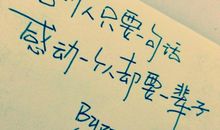 人只要一句话
感动一个人却要一辈子